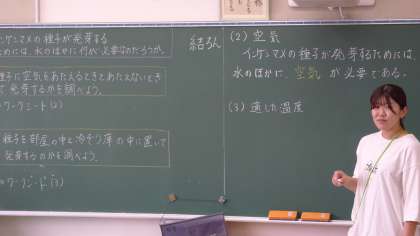 インゲンマメの種子が発芽する
ためには、水のほかに何が必要なのだろうか。
種子に空気をあたえるときとあたえないとき
で発芽するかを調べよう。
ワークシート(2)
種子を部屋の中と冷ぞう庫の中に置いて
発芽するのかを調べよう。
ワークシート(3)
結ろん
(2) 空気
インゲンマメの種子が発芽するためには、
水のほかに 空気 が必要である。
(3) 適した温度